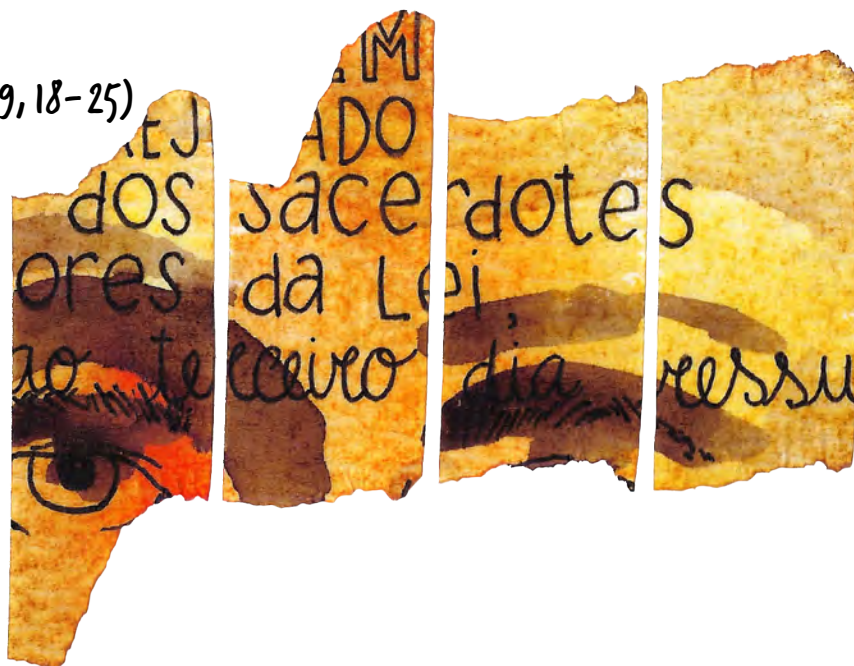 9, 18-25)
M
EJ ADO
dos sacerdotes
ores da Lei,
ao terceiro dia ressu